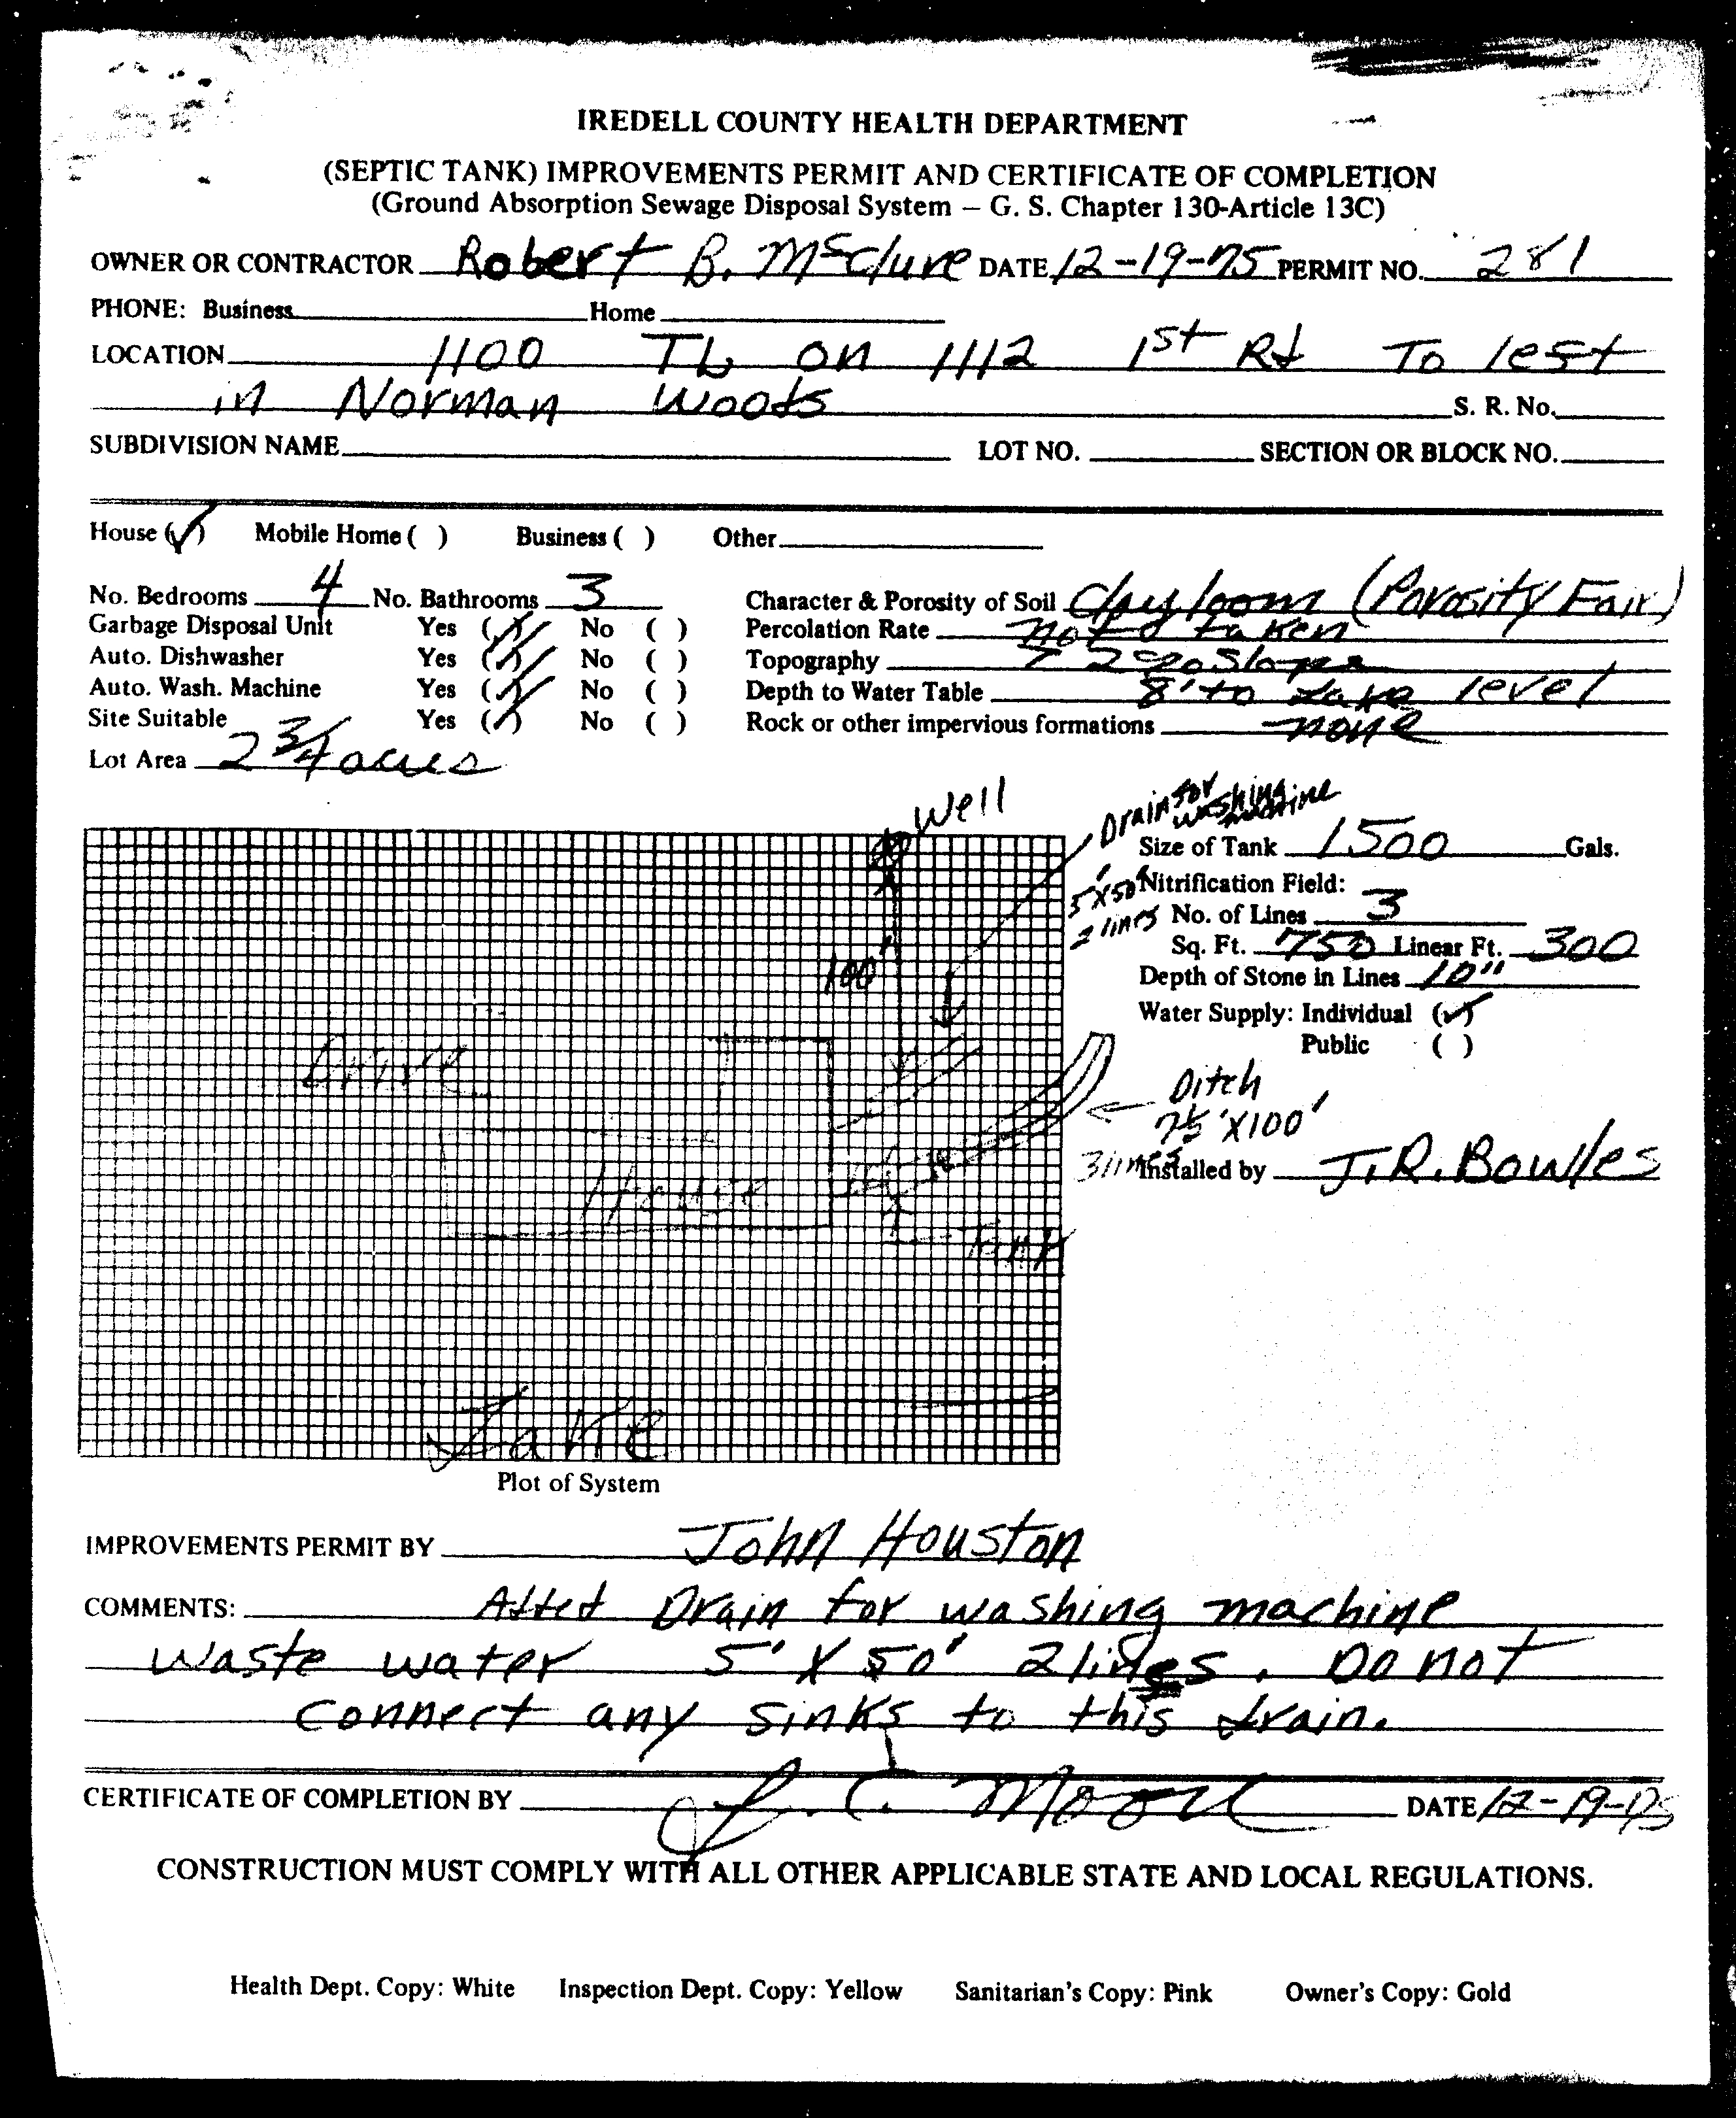 IREDELL COUNTY HEALTH DEPARTMENT
(SEPTIC TANK) IMPROVEMENTS PERMIT AND CERTIFICATE OF COMPLETION
(Ground Absorption Sewage Disposal System – G. S. Chapter 130-Article 13C)
OWNER OR CONTRACTOR Robert B. McClure DATE 12-19-75 PERMIT NO. 281
PHONE: Business Home
LOCATION 1100 TL on 1112 1st Rd To left
in Norman Woods S. R. No.
SUBDIVISION NAME LOT NO. SECTION OR BLOCK NO.
House (✓) Mobile Home ( ) Business ( ) Other
No. Bedrooms 4 No. Bathrooms 3 Character & Porosity of Soil Clay loom (Porosity Fair)
Garbage Disposal Unit Yes (✓) No ( ) Percolation Rate not taken
Auto. Dishwasher Yes (✓) No ( ) Topography 2% Slope
Auto. Wash. Machine Yes (✓) No ( ) Depth to Water Table 8' to Lake level
Site Suitable Yes (✓) No ( ) Rock or other impervious formations none
Lot Area 2 3/4 acres
Well
Drain for
washing
machine
Size of Tank 1500 Gals.
5'X50'
2 lines
Nitrification Field:
No. of Lines 3
Sq. Ft. 750 Linear Ft. 300
100'
Depth of Stone in Lines 10"
Water Supply: Individual (✓)
Public ( )
Drive
Ditch
2½'X100'
3 lines
Installed by J.R. Bowles
House
Tank
Lake
Plot of System
IMPROVEMENTS PERMIT BY John Houston
COMMENTS: Added Drain for washing machine
waste water 5' X 50' 2 lines. Do not
connect any sinks to this drain.
CERTIFICATE OF COMPLETION BY J. C. Moore DATE 12-19-75
CONSTRUCTION MUST COMPLY WITH ALL OTHER APPLICABLE STATE AND LOCAL REGULATIONS.
Health Dept. Copy: White Inspection Dept. Copy: Yellow Sanitarian's Copy: Pink Owner's Copy: Gold